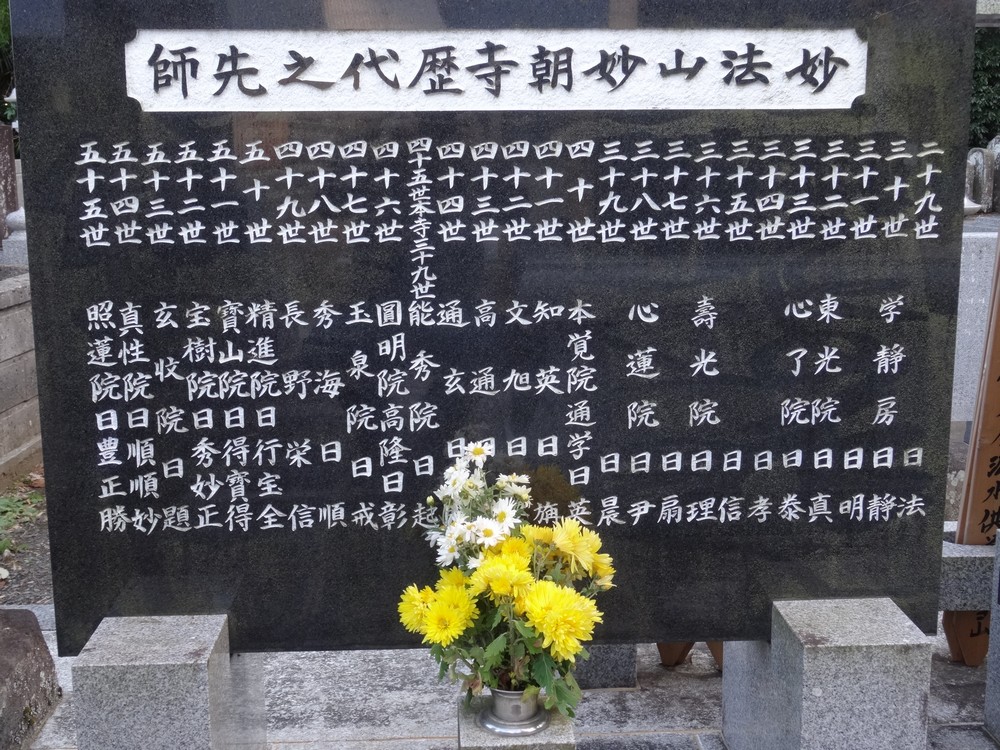 妙法山妙朝寺歴代之先師
二十九世 日法
三十世 学静房日静
三十一世 日明
三十二世 東光院日真
三十三世 心了院日泰
三十四世 日孝
三十五世 日信
三十六世 壽光院日理
三十七世 日扇
三十八世 心蓮院日尹
三十九世 日晨
四十世 本覚院通学日英
四十一世 知英日施
四十二世 文旭日
四十三世 高通日
四十四世 通玄日
四十五世本寺三十九世 能秀院日起
四十六世 圓明院高隆日彰
四十七世 玉泉院日戒
四十八世 秀海日順
四十九世 長野栄信
五十世 精進院日行宝全
五十一世 寶山院日得寶得
五十二世 宝樹院日秀妙正
五十三世 玄收院日題
五十四世 真性院日順順妙
五十五世 照蓮院日豊正勝